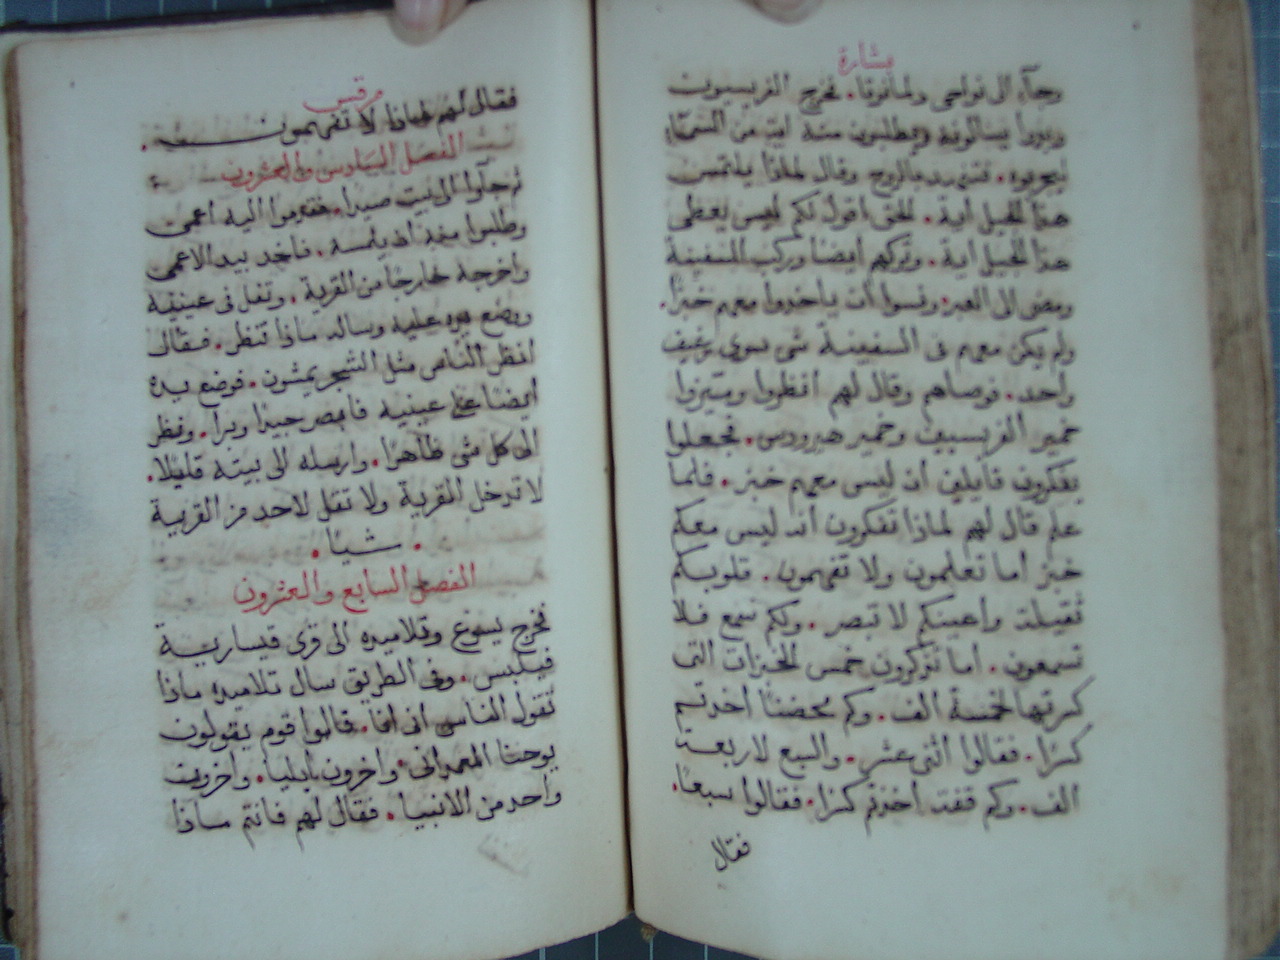 بشارة
وجآء الى نواحى ولمانوثا. فخرج الفريسيون
وبدوا يسالونه ويطلبون منه اية من السمآء
ليجربوه. فتنهد بالروح وقال لماذا يلتمس
هذا الجيل اية. الحق اقول لكم ليس يعطى
هذا الجيل اية. وتركهم ايضا وركب السفينة
ومضى الى العبر ونسوا ان ياخدوا معهم خبزا.
ولم يكن معهم فى السفينة شى سوى رغيف
واحد. فوصاهم وقال لهم انظروا وتميزوا
خمير الفريسيين وخمير هيرودس. فجعلوا
يفكرون قايلين ان ليس معهم خبز. فلما
علم قال لهم لماذا تفكرون انه ليس معكم
خبز اما تعلمون ولا تفهمون. قلوبكم
ثقيلة واعينكم لا تبصر. ولكم سمع فلا
تسمعون. اما تذكرون خمس الخبزات التى
كسرتها لخمسة الف. وكم محضنا اخدتم
كسرا. فقالوا اثنى عشر. والسبع لاربعة
الف. وكم قفة اخدتم كسرا. فقالوا سبعا.
فقال
مرقس
فقال لهم لماذا لا تفهمون
الفصل السادس والعشرون
ثم جآوا الى بيت صيدا. فقدموا اليه اعمى
وطلبوا منه ان يلمسه. فاخد بيد الاعمى
واخرجه خارجا من القرية. وتفل فى عينيه
ووضع يده عليه وساله ماذا تنظر. فقال
انظر الناس مثل الشجر يمشون. فوضع يده
ايضا على عينيه فابصر جيدا وبرا. ونظر
الى كل شى ظاهرا. وارسله الى بيته قايلا.
لا تدخل القرية ولا تقل لاحد من القرية
شيا.
الفصل السابع والعشرون
فخرج يسوع وتلاميده الى قرى قيسارية
فيلبس. وفى الطريق سال تلاميده ماذا
تقول الناس انى انا. قالوا قوم يقولون
يوحنا المعمدانى. واخرون ايليا. واخرون
واحد من الانبيا. فقال لهم فانتم ماذا